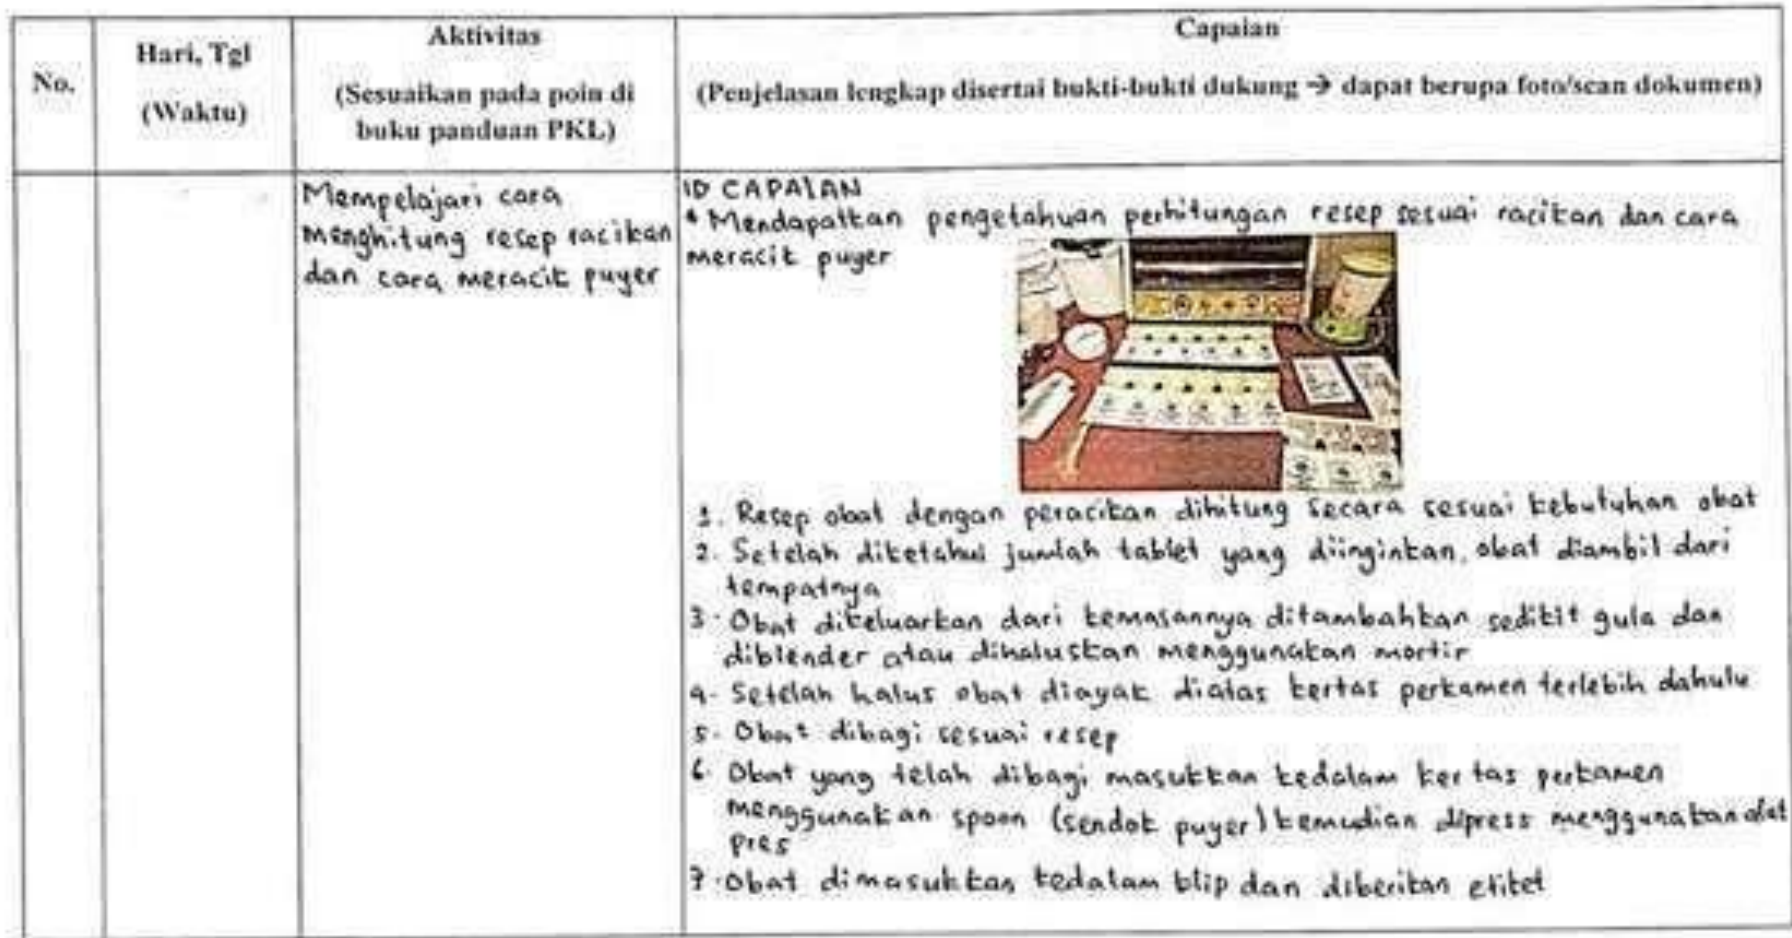 No.
Hari, Tgl
(Waktu)
Aktivitas
(Sesuaikan pada poin di
buku panduan PKL)
Capaian
(Penjelasan lengkap disertai bukti-bukti dukung → dapat berupa foto/scan dokumen)
Mempelajari cara
menghitung resep racikan
dan cara meracik puyer
ID CAPAIAN
* Mendapatkan pengetahuan perhitungan resep sesuai racikan dan cara
meracik puyer
1. Resep obat dengan peracikan dihitung secara sesuai kebutuhan obat
2. Setelah diketahui jumlah tablet yang diinginkan, obat diambil dari
tempatnya
3. Obat dikeluarkan dari kemasannya ditambahkan sedikit gula dan
diblender atau dihaluskan menggunakan mortir
4. Setelah halus obat diayak diatas kertas perkamen terlebih dahulu
5. Obat dibagi sesuai resep
6. Obat yang telah dibagi masukkan kedalam kertas perkamen
menggunakan spoon (sendok puyer) kemudian dipress menggunakan alat
pres
7. Obat dimasukkan kedalam blip dan diberikan etiket